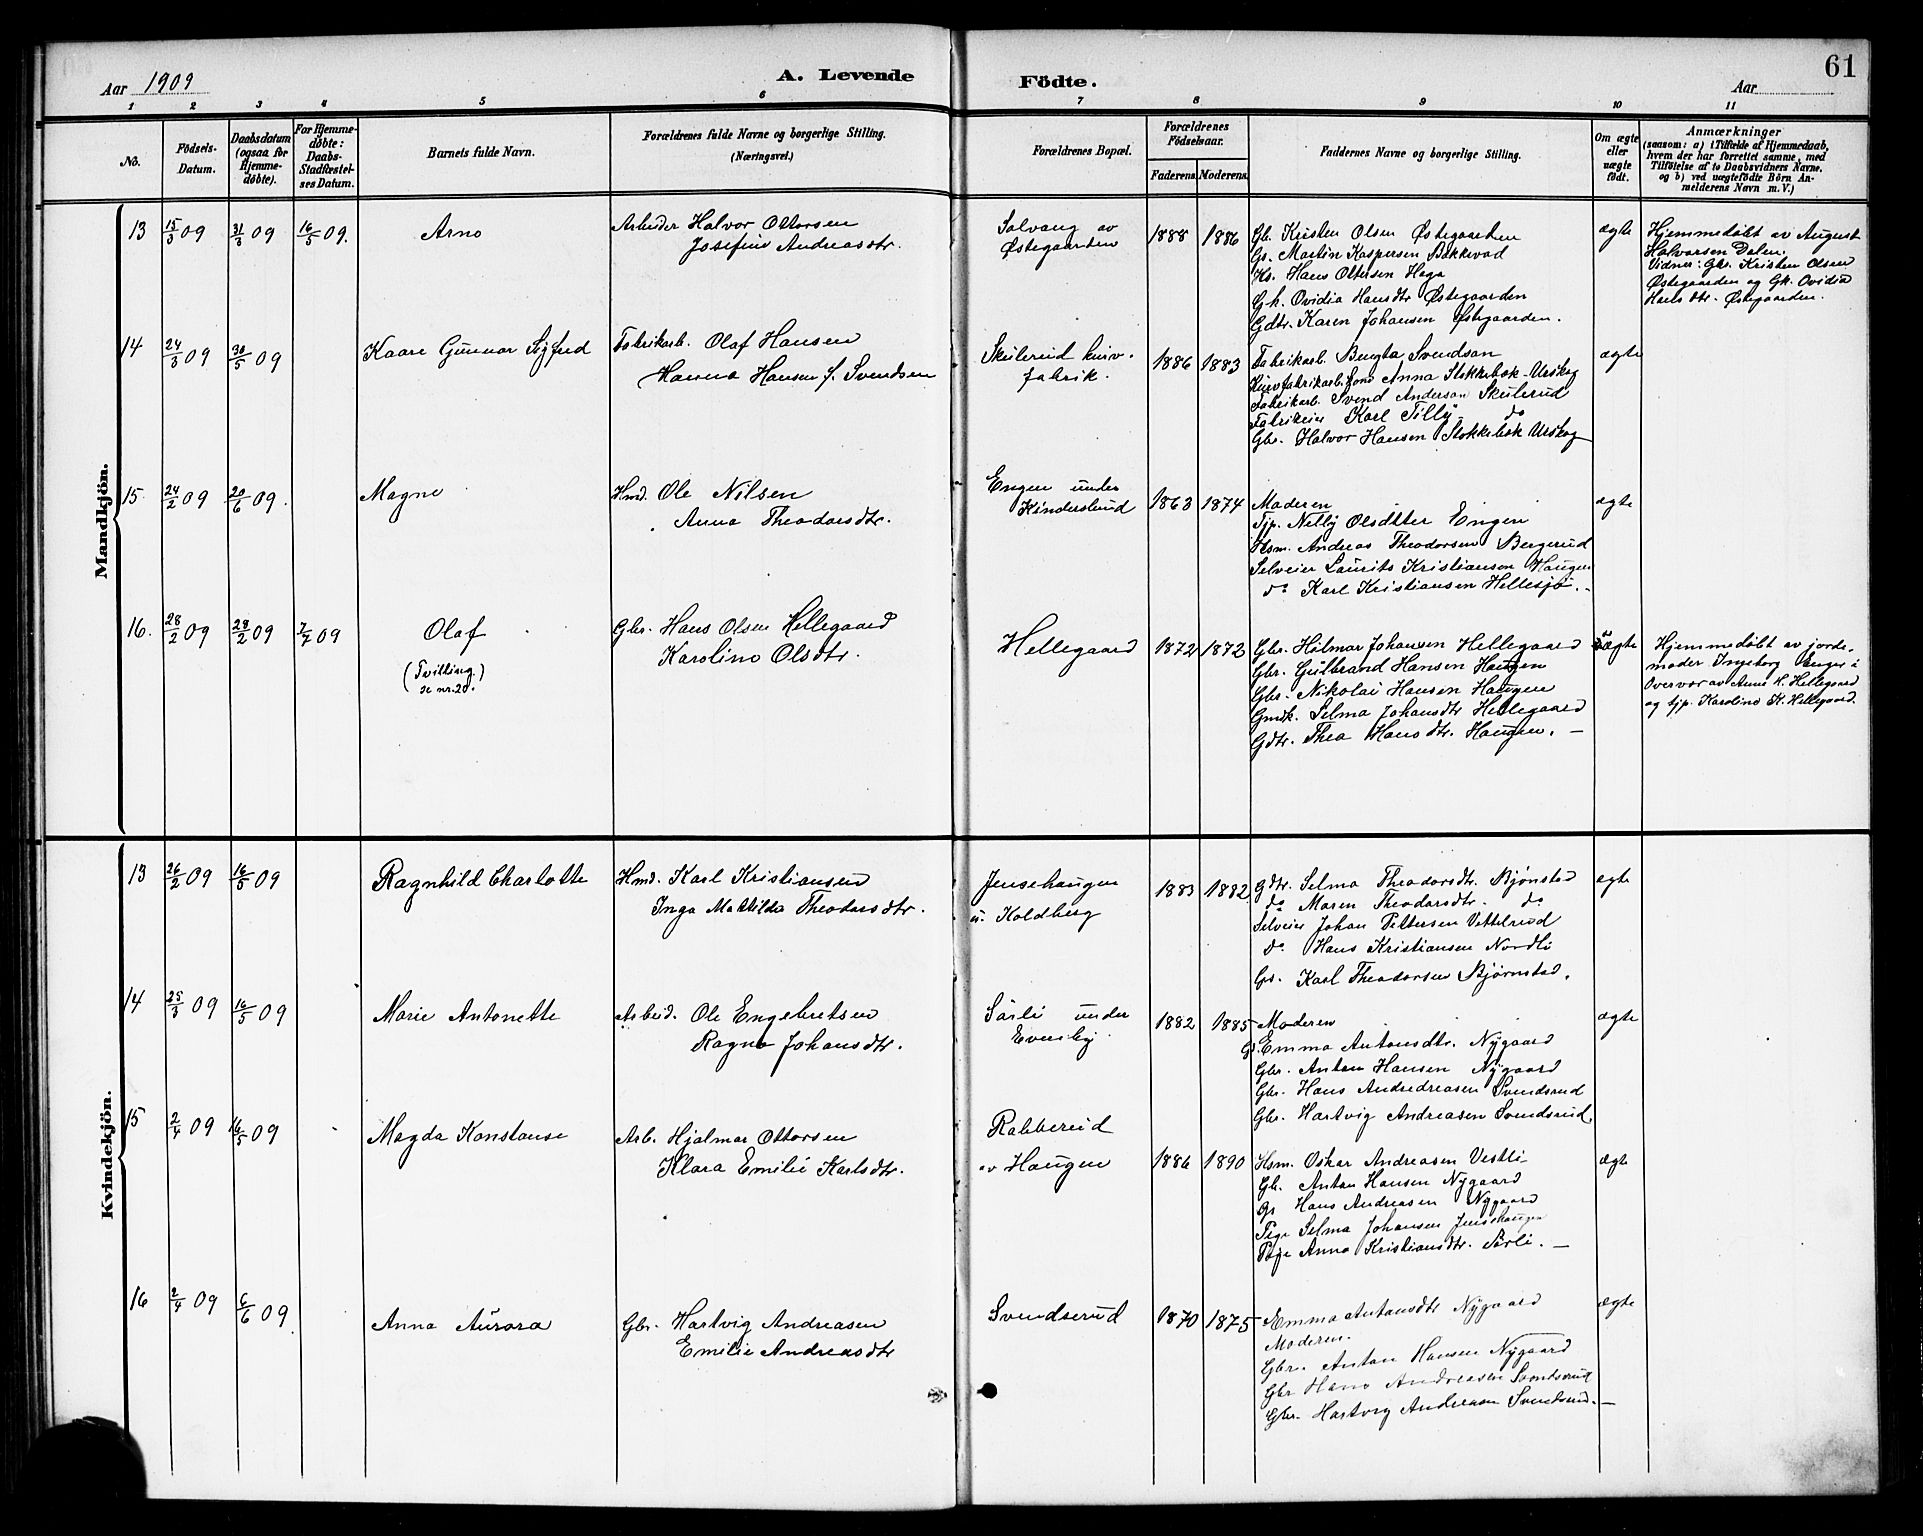 Aar 1909
A. Levende Födte.
Aar
61
1 2 3 4 5 6 7 8 9 10 11
No.
Födsels-Datum.
Daabsdatum (ogsaa for Hjemmedöbte).
For Hjemmedøbte: Daabs-Stadfæstelses Datum.
Barnets fulde Navn.
Forældrenes fulde Navne og borgerlige Stilling. (Næringsvei.)
Forældrenes Bopæl.
Forældrenes Födselsaar.
Faderens. Moderens.
Faddernes Navne og borgerlige Stilling.
Om ægte eller uægte födt.
Anmærkninger
(saasom: a) i Tilfælde af Hjemmedaab, hvem der har forrettet samme, med Tilföielse af to Daabsvidners Navne, og b) ved uægtefödte Börn Anmelderens Navn m. V.)
Mandkjön.
13 15/3 09 31/3 09 16/5 09. Arno
Arbeider Halvor Ottersen
Josefine Andreasdtr.
Solvang av
Østegaarden
1888 1886
Gb. Kristen Olsen Østegaarden
Gs. Martin Kaspersen Bakkevad
Ks. Hans Ottersen Haga
Gk. Ovidia Hansdtr Østegaarden
Gdtr. Karen Johansen Østegaarden.
ægte
Hjemmedöbt av August
Halvorsen Dalen,
Vidner: Gbr. Kristen Olsen
Østegaarden og Gk. Ovidia
Hansdtr. Østegaarden.
14 24/3 09 30/5 09 Kaare Gunnar Sigfred
Fabrikarb. Olaf Hansen
Hanna Hansen f. Svendsen
Skulerud
fabrik.
1886 1883
Fabrikarb. Bengta Svendson
Anna Stokkebæk Urskog
Fabrikarb. Svend Anderson Skulerud
Fabrikeier Karl Tilly do
Gbr. Halvor Hansen Stokkebæk Urskog
ægte
15 24/2 09 20/6 09. Magne
Hmd. Ole Nilsen
Anna Theodorsdtr.
Engen under
Kinderslrud
1863 1874
Moderen
Tjp. Nelly Olsdtter Engen
Hsm. Andreas Theodorsen Bergerud
Selveier Laurits Kristiansen Haugen
do Karl Kristiansen Hellesjø.
ægte
16. 28/2 09 28/2 09 7/7 09 Olaf
(Tvilling.)
se nr. 20.
Gbr. Hans Olsen Hellegaard
Karoline Olsdtr.
Hellegaard
1872 1872
Gbr. Hilmar Johansen Hellegaard
Gbr. Gulbrand Hansen Haugen
Gbr. Nikolai Hansen Haugen
Gmdk. Selma Johansdtr Hellegaard
Gdtr. Thea Hansdtr. Haugen.
ægte
Hjemmedöbt av jorde-
moder Ingeborg Enger i
Overvær av Anne H. Hellegaard
og tjp. Karoline K. Hellegaard.
Kvindekjön.
13 26/2 09 16/5 09 Ragnhild Charlotte
Hmd. Karl Kristiansen
Inga Mathilda Theodorsdtr.
Jensehaugen
u. Koldberg
1883 1882
Gdtr. Selma Theodorsdtr. Bjønstad
do Maren Theodorsdtr. do
Selveier Johan Pettersen Vettelrud
do Hans Kristiansen Nordli
Gs. Karl Theodorsen Bjørnstad.
ægte
14 25/3 09 16/5 09 Marie Antonette
Arbeid. Ole Engebretsen
Ragna Johansdtr.
Sørli under
Evensby
1882 1885
Moderen
Emma Antonsdtr. Nygaard
Gbr. Anton Hansen Nygaard
Gbr. Hans Andredreasen Svendsrud
Gbr. Hartvig Andreasen Svendsrud.
ægte
15 2/4 09 16/5 09 Magda Konstanse
Arb. Hjalmar Ottersen
Klara Emilie Karlsdtr.
Rabberud
av Haugen
1886 1890
Hsm. Oskar Andreasen Vestli
Gb. Anton Hansen Nygaard
Gs Hans Andreasen Nygaard
Pige Selma Johansen Jensehaugen
Pige Anna Kristiansdtr. Sørli.
ægte
16 2/4 09 6/6 09 Anna Aurora
Gbr. Hartvig Andreasen
Emilie Andreasdtr
Svendserud
1870 1875
Emma Antonsdtr Nygaard
Moderen.
Gbr. Anton Hansen Nygaard
Gbr Hans Andreasen Svendserud
Gbr. Hartvig Andreasen Svendsrud.
ægte